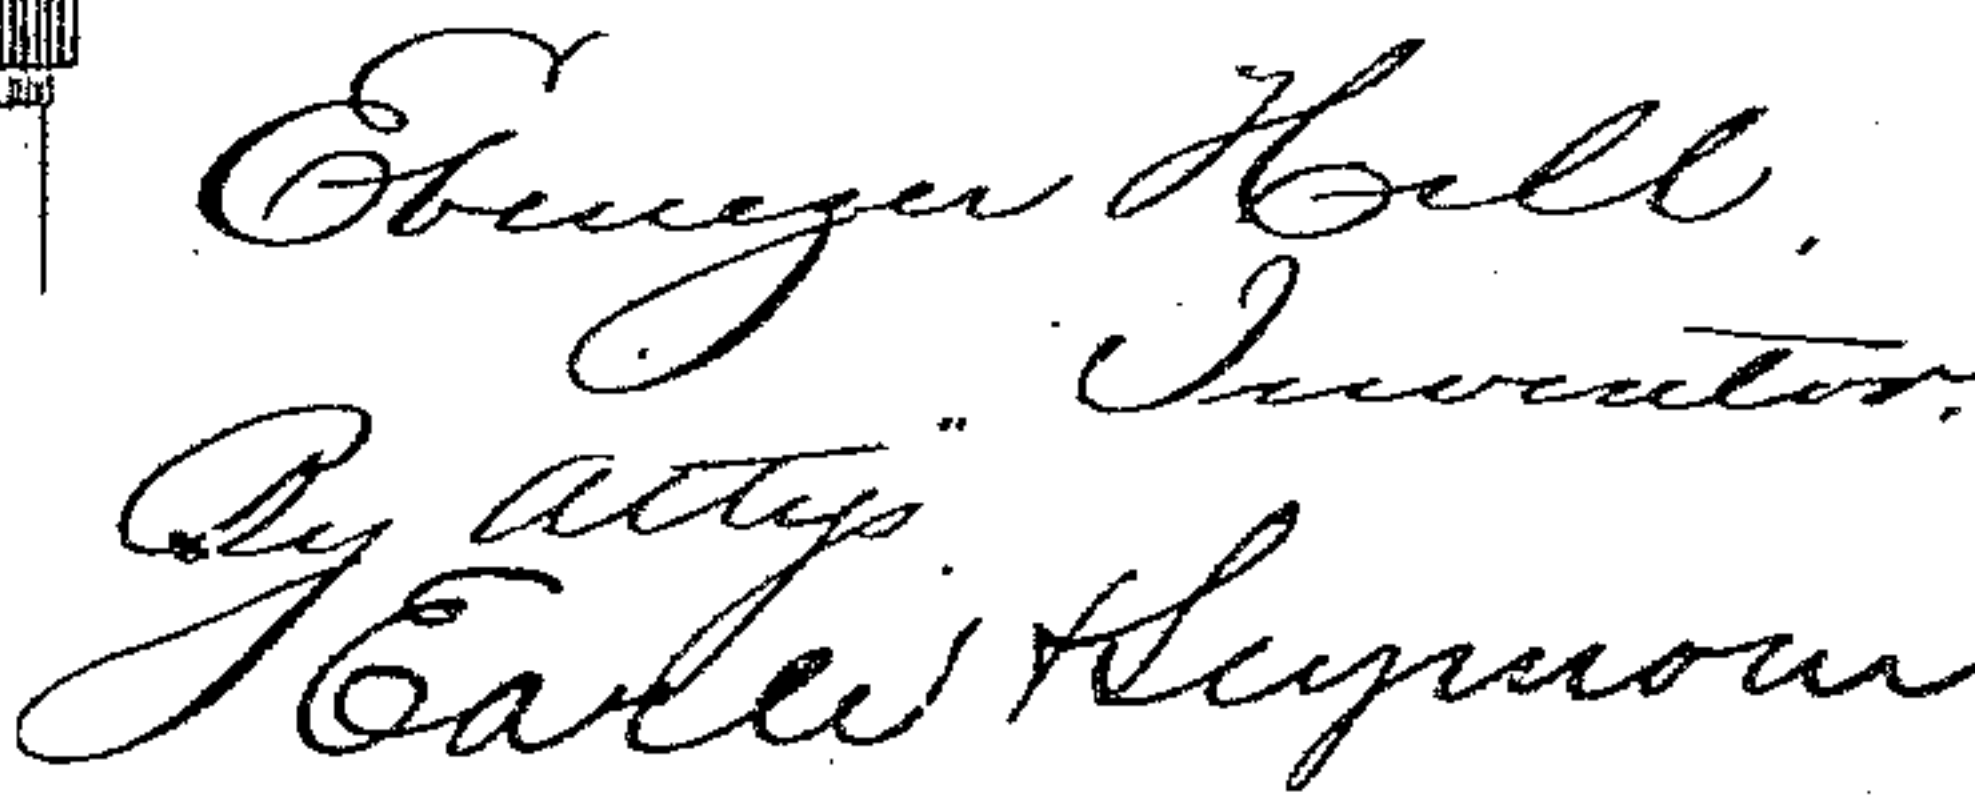 Ebenezer Hill,
Inventor.
By attys
Earle & Seymour